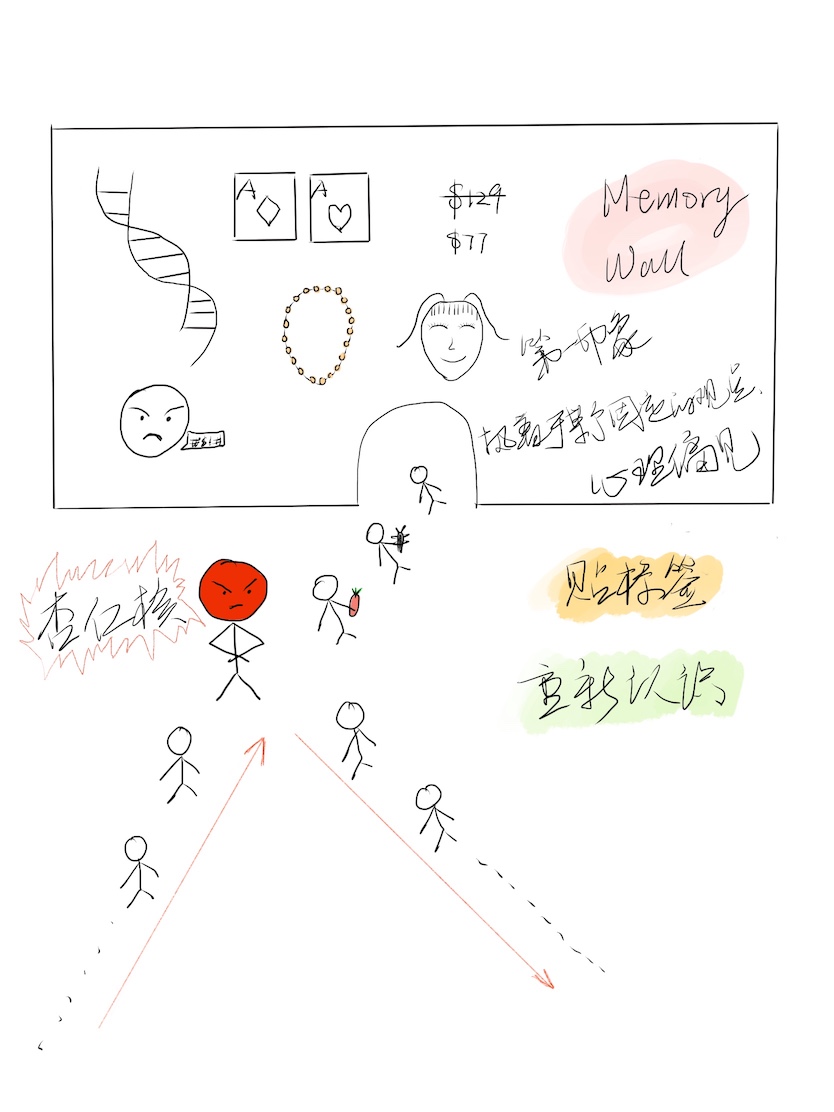 A A
$129
$77
Memory
Wall
第一印象
执着于某个固定的观点、
心理偏见
#$!#
杏仁核
贴标签
重新认识